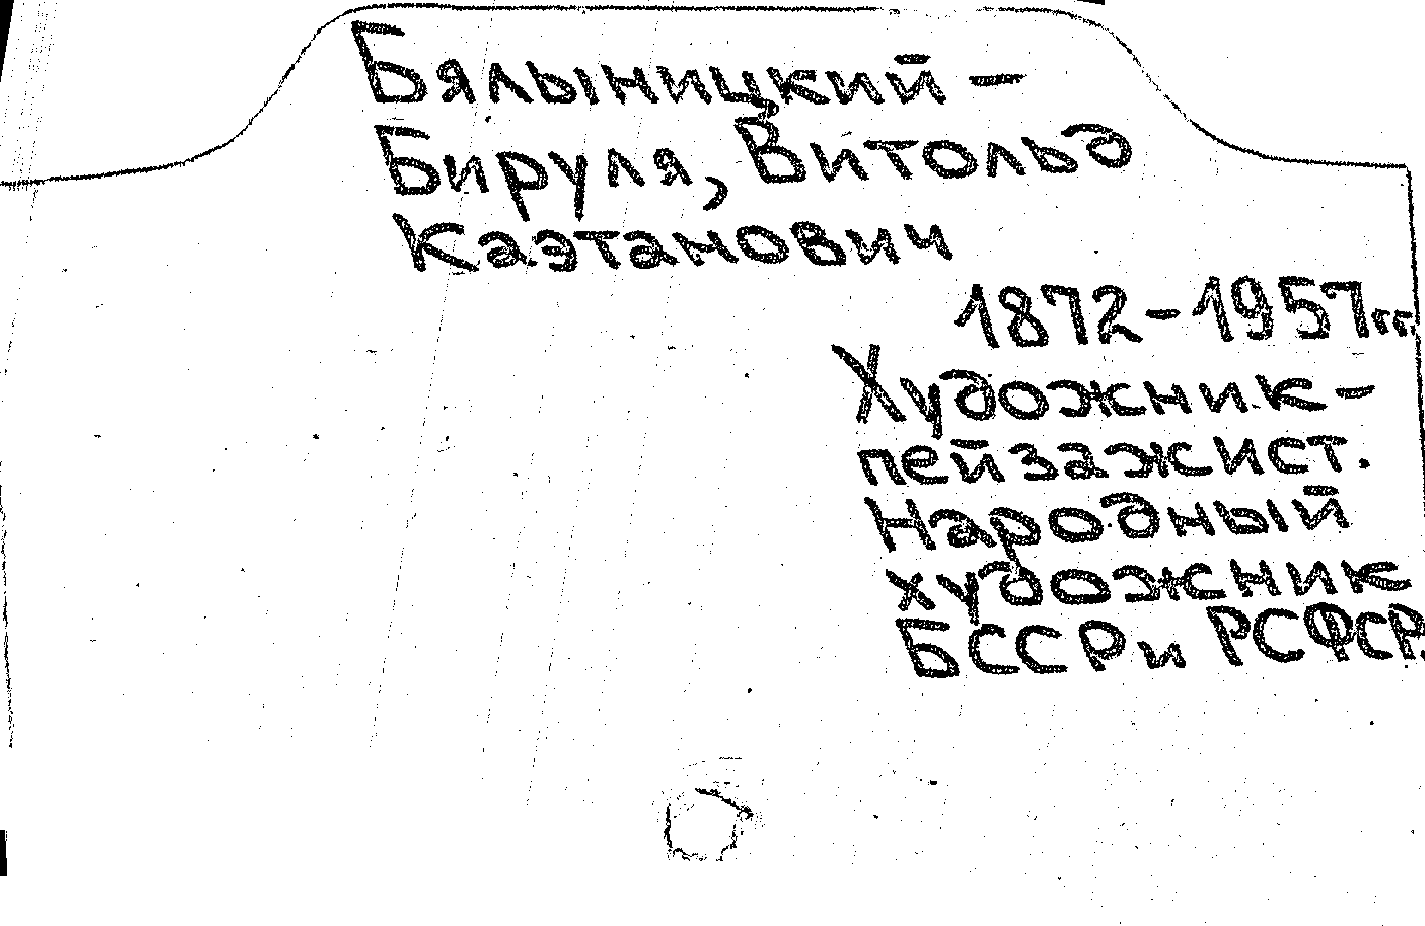 Бялыницкий -
Бируля, Витольд
Каэтанович
1872-1957гг.
Художник-
пейзажист.
Народный
художник
БССР и РСФСР.